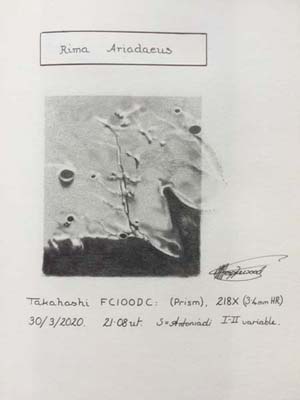 Rima Ariadaeus
Takahashi FC100DC: (Prism), 218X (3·4mm HR)
30/3/2020. 21·08ut. S=Antoniadi I-II variable.